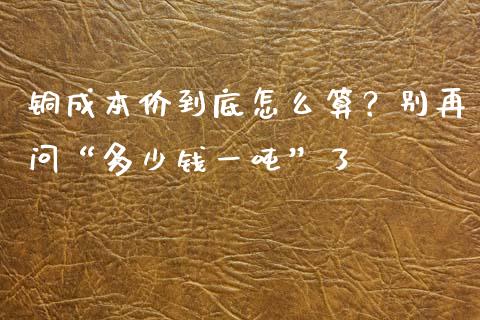 铜成本价到底怎么算？别再
问“多少钱一吨”了